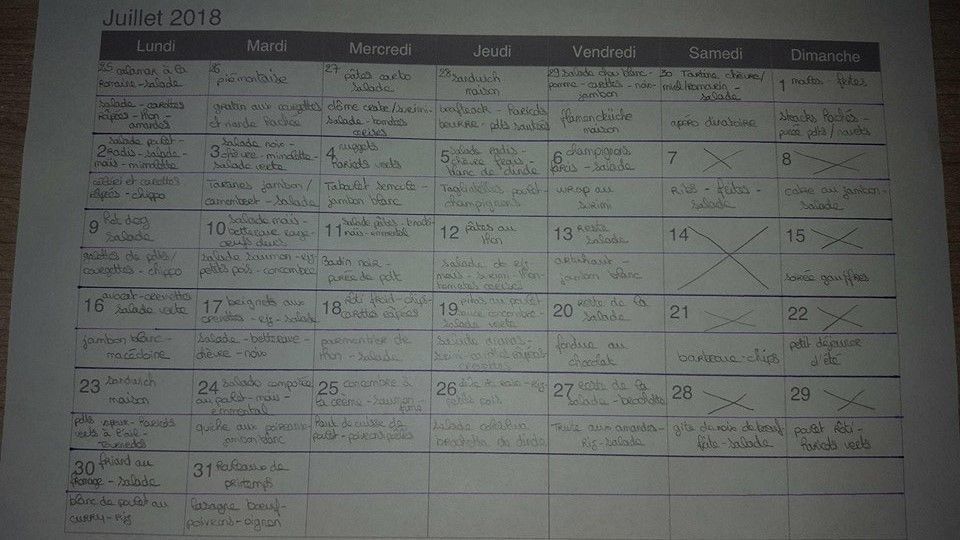 Juillet 2018
Lundi Mardi Mercredi Jeudi Vendredi Samedi Dimanche
25 calamar à la
Romaine - salade
26 piémontaise
27 pâtes carbo
salade
28 sandwich
maison
29 salade chou blanc -
pomme - carottes - noix -
jambon
30 Tartine chèvre/
miel/Romarin -
salade
1
salade - carottes
Râpées - thon -
amandes
gratin aux courgettes
et viande hachée
dôme crabe/surimi -
salade - tomates
cerises
haricots
beurre - pdts sautées
flammenkuche
maison
apéro dinatoire
steacks hachés -
purée pdts/navets
2 salade poulet -
radis - salade -
maïs - mimolette
3 salade noix -
chèvre - mimolette -
salade verte
4 nuggets
haricots verts
5 salade radis -
chèvre frais -
blanc de dinde
6 champignons
farcis - salade
7
8
céleri et carottes
râpés - chippo
Tartines jambon/
camembert - salade
Taboulet semoule -
jambon blanc
Tagliatelles poulet -
champignons
wrap au
surimi
Ribs - frites -
salade
cake au jambon -
salade
9 hot dog
salade
10 salade maïs -
betterave rouge -
oeufs durs
11 salade pâtes -
maïs - emmental
12 pâtes au
thon
13 reste
salade
14
15
galettes de pdts/
courgettes - chippo
salade saumon - riz -
petits pois - concombre
boudin noir -
purée de pdt
salade de riz -
maïs - surimi - thon -
tomates cerise
artichaut -
jambon blanc
soirée gauffres
16 avocat - crevettes
salade verte
17 beignets aux
crevettes - riz - salade
18 rôti froid - chips -
carottes râpées
19 pitas au poulet
sauce concombre -
salade verte
20 reste de la
salade
21
22
jambon blanc -
macédoine
salade - betterave -
chèvre - noix
parmentière de
thon - salade
fondue au
chocolat
barbecue - chips
petit déjeuner
d'été
23 sandwich
maison
24 salade composée
au poulet - maïs -
emmental
25 concombre à
la crème - saumon -
fumé
26
petits pois
27 reste de la
salade -
28
29
pdts vapeur - haricots
verts à l'ail -
tournedos
quiche aux poireaux -
jambon blanc
Haut de cuisse de
poulet - poivrons poêlés
salade coleslaw
brochette de dinde
Truite aux amandes -
Riz - salade
gite de noix de boeuf -
frite - salade
poulet rôti -
haricots verts
30 friand au
fromage - salade
31 Rouleaux de
printemps
blanc de poulet au
CURRY - Riz
lasagne boeuf -
poivrons - oignon